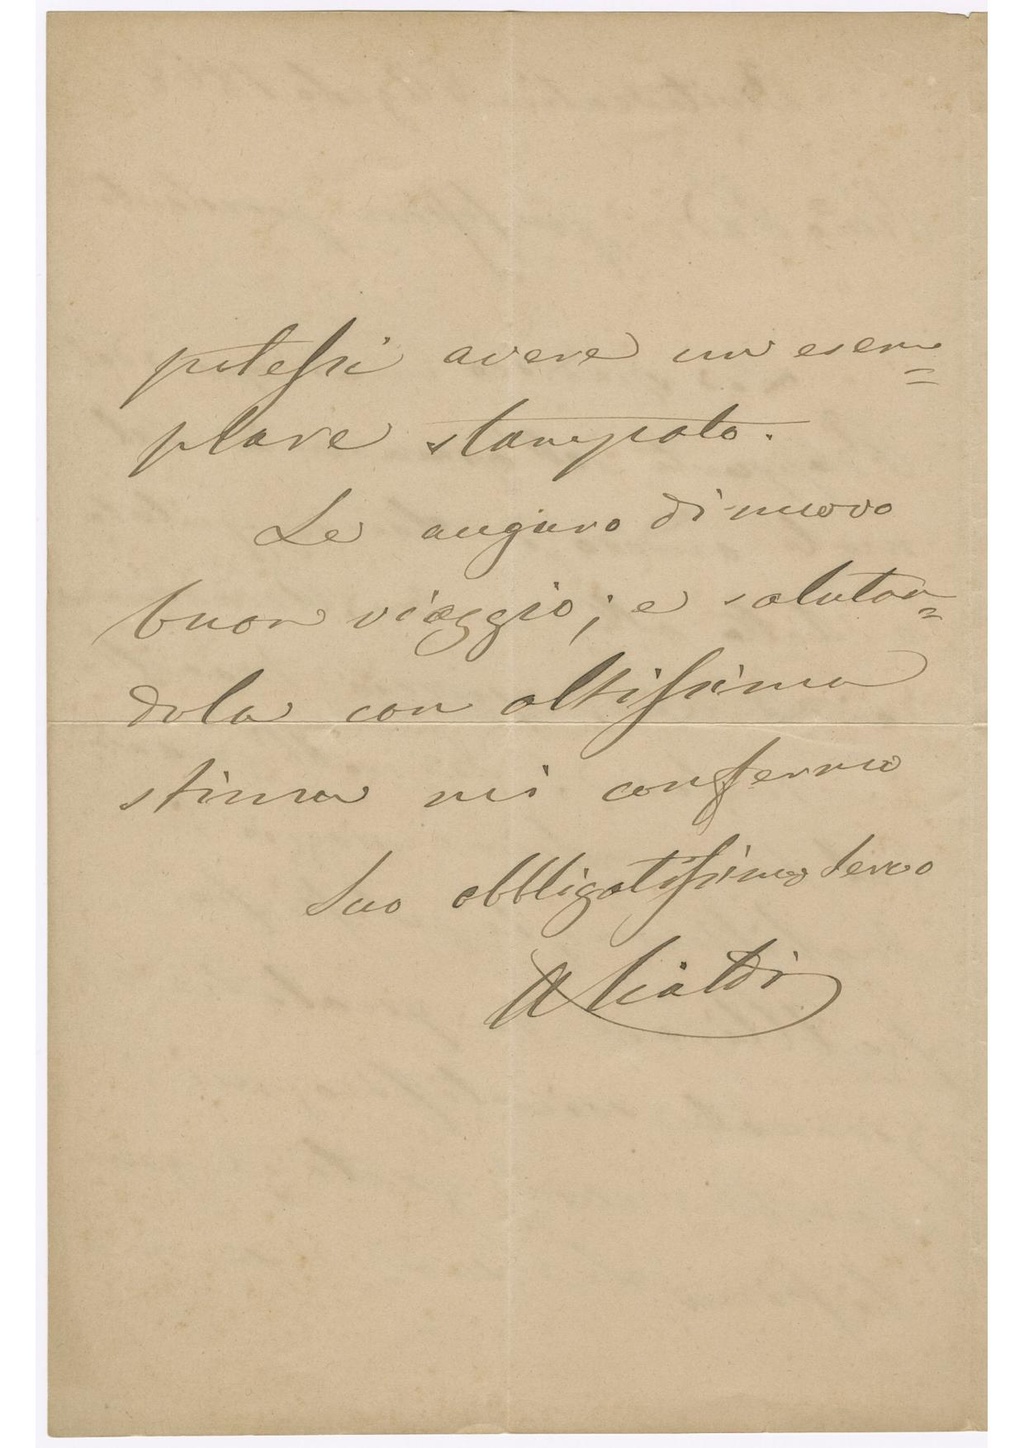 potessi avere un esem=
plare stampato.
Le auguro di nuovo
buon viaggio; e salutan=
dola con altissima
stima mi confermo
Suo obbligatissimo servo
A Cialdi